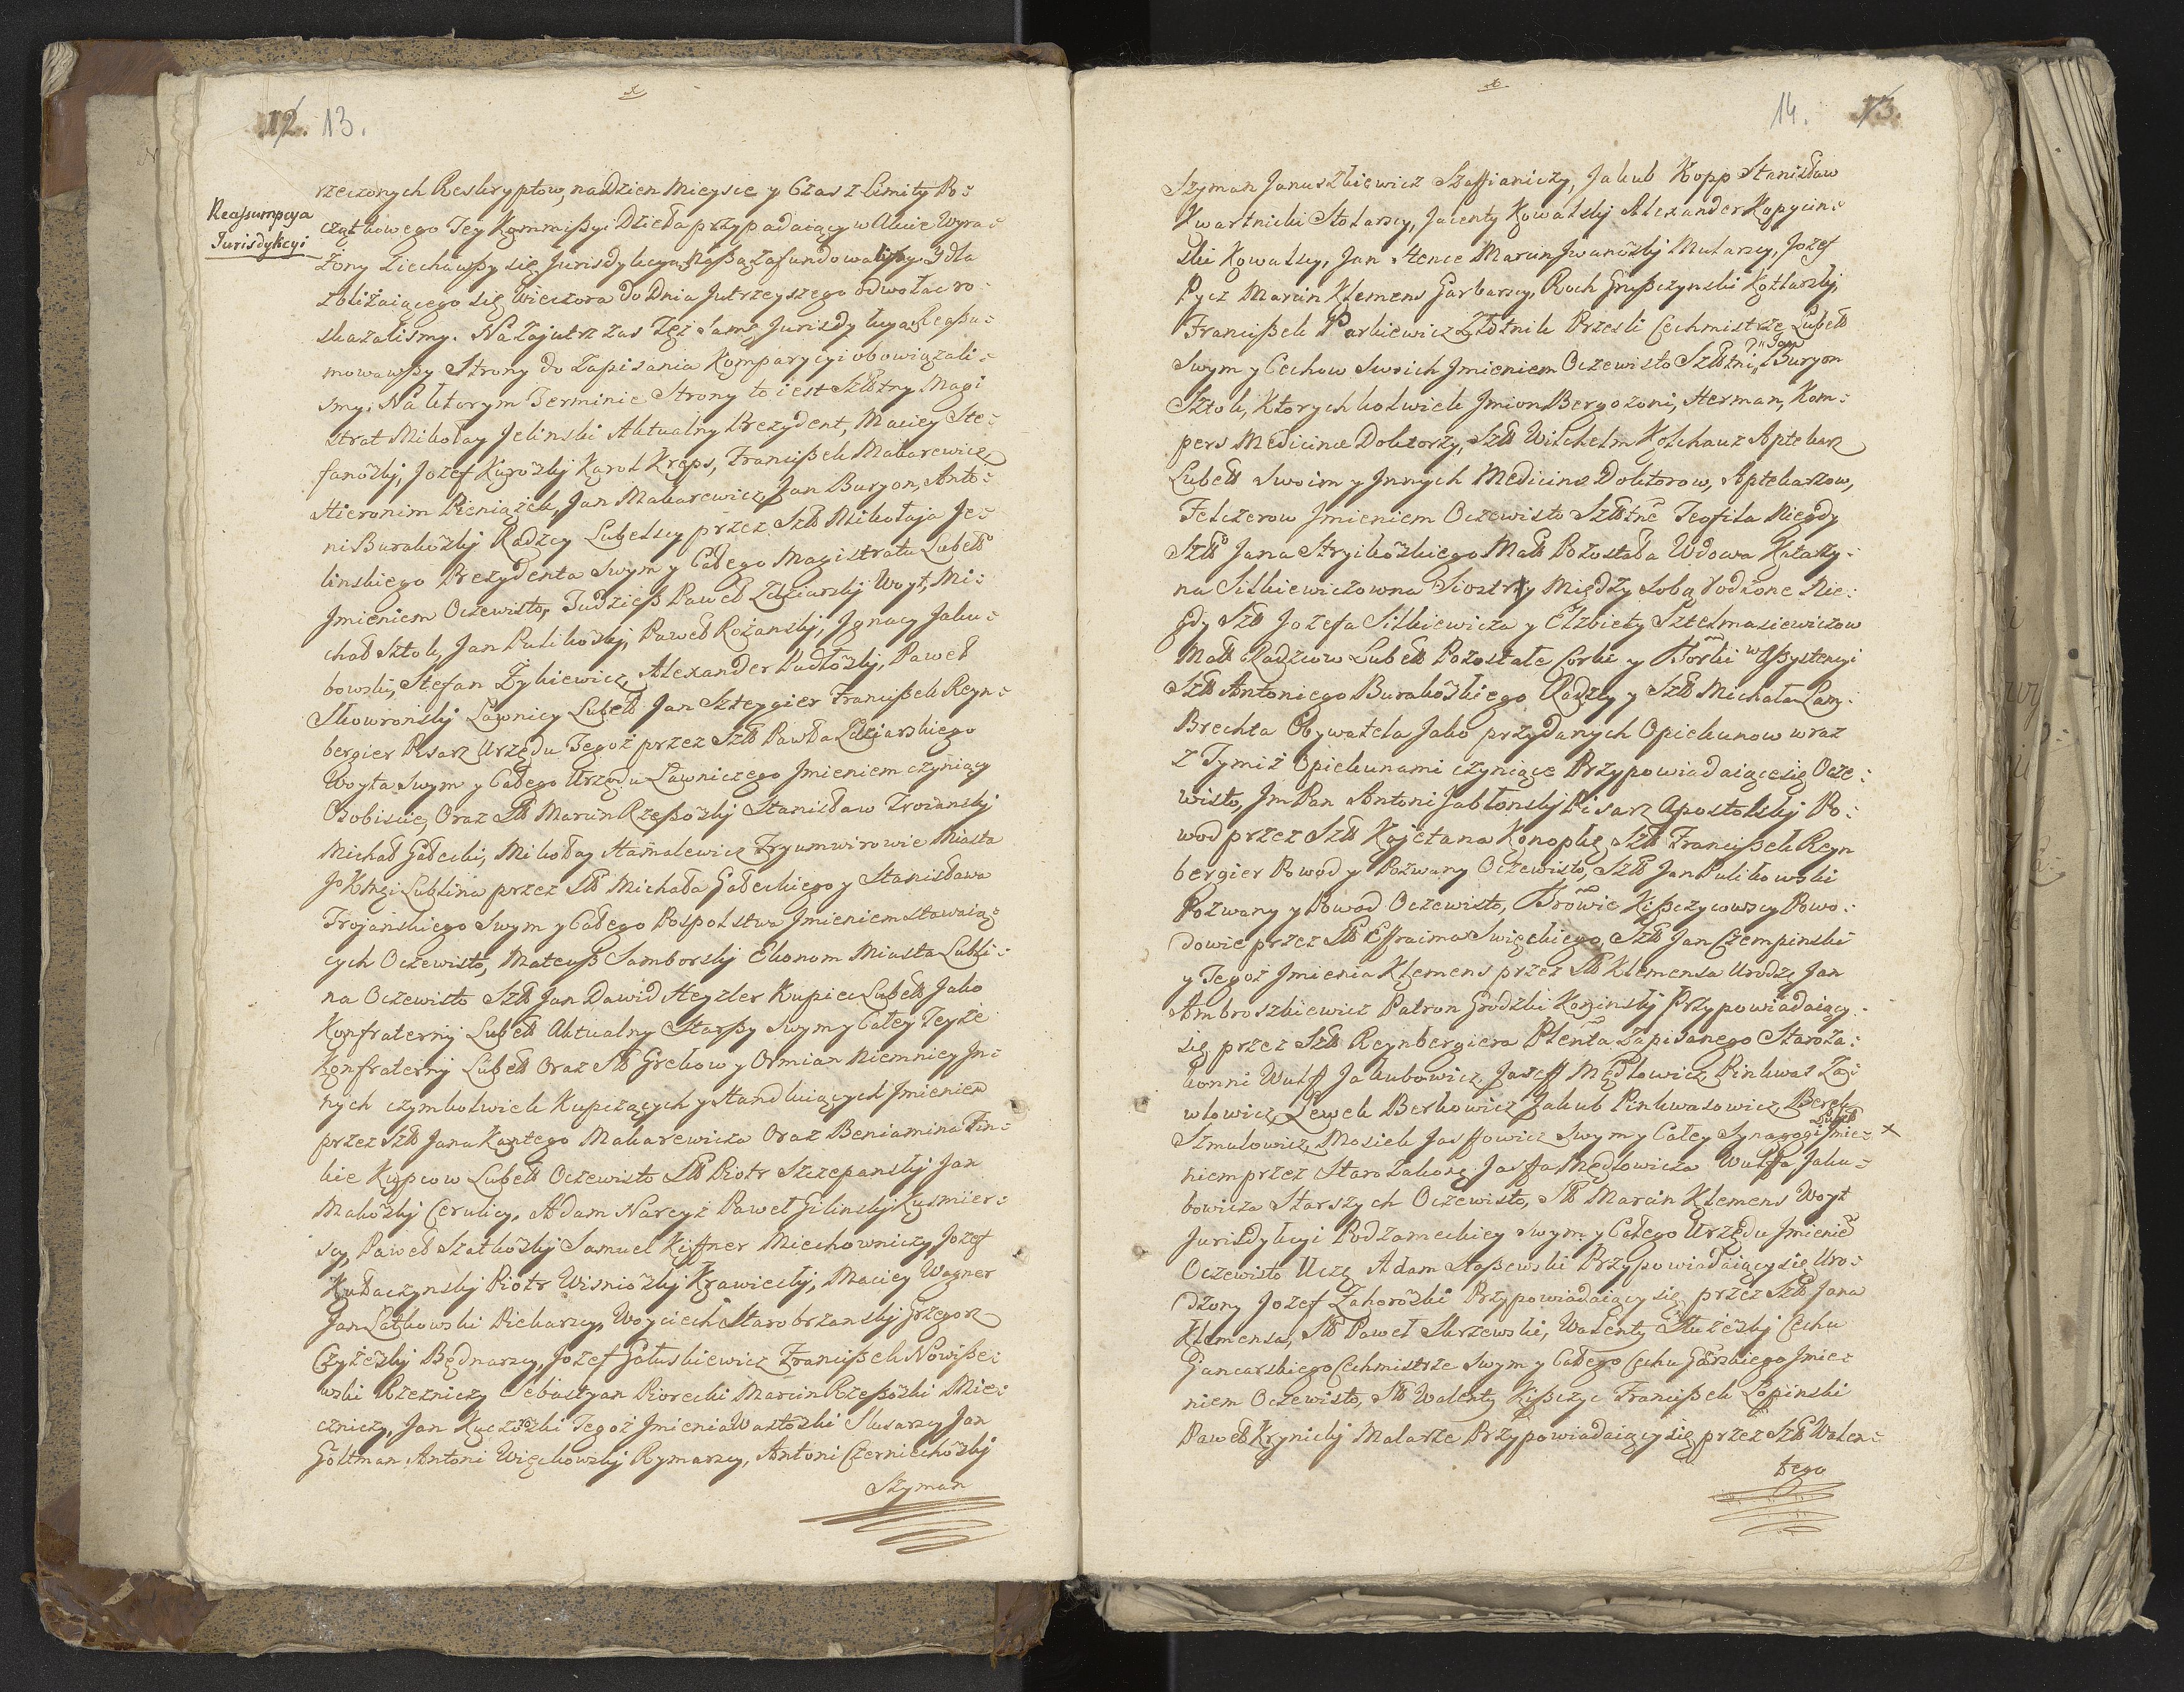 12. 13.
Reassumpcya
Jurisdykcyi
rzeczonych Reskryptow, na Dzien Mieysce y Czas z Limity Po=
czątkowego Tey Kommißyi Dzieła przypadaiący w Akcie Wyra=
żony Ziechawßy się Jurisdykcyą Naßą zafundowaliśmy. Y dla
zbliżaiącego się Wieczora do Dnia Jutrzeyszego odwołac ro=
skazalismy. Nazajutrz zas Tęż Samę Jurisdykcyą Reaßu=
mowawßy Strony do Zapisania Komparycyi obowiązali=
smy. Na ktorym Terminie Strony to iest Szltny Magi
strat Mikołay Jelinski Aktualny Prezydent, Maciey Ste=
fanoski, Jozef Kuroski Karol Kreps, Francißek Makarewicz
Hieronim Pieniążek, Jan Makarewicz Jan Buryon, Anto=
ni Burakoski Radzcy Lubelscy przez Szl Mikołaja Je=
linskiego Prezydenta swym y Całego Magistratu Lubel
Jmieniem Oczewisto, Tudzież Paweł Ździarski Woyt, Mi=
chał Sztok, Jan Pulikoski, Paweł Rożanski, Jgnacy Jaku=
bowski, Stefan Żykiewicz, Alexander Pudłoski, Paweł
Skowronski Ławnicy Lubel Jan Szteygier Francißek Reyn=
bergier Pisarz Urzędu Tegoż przez Szl Pawła Zdziarskiego
Woyta swym y Całego Urzędu Ławniczego Jmieniem czyniący
Osobiscie, Oraz Sł Marcin Rzeßoski Stanisław Troianski
Michał Gałecki, Mikołay Hamalewicz Tryumwirowie Miasta
JKMci Lublina przez Sł Michała Gałeckiego y Stanisława
Trojanskiego Swym y Całego Pospolstwa Jmieniem stawaią=
cych Oczewisto, Mateuß Samborski Ekonom Miasta Lubli=
na Oczewisto Szl Jan Dawid Heyzler Kupiec Lubel Jako
Konfraternij Lubel Aktualny Starßy Swym y Całey Teyże
Konfraternij Lubel oraz Sł Grekow y Ormian Niemniey Jn=
nych czymkolwiek Kupczących y Handluiących Jmieniem
przez Szl Jana Kantego Makarewicza Oraz Beniamina Fin=
kie Kupcow Lubel Oczewisto Sł Piotr Szczepanski Jan
Makoski Cerulicy, Adam Narcyz Paweł Gilinski Kusmier=
scy, Paweł Szatkoski Samuel Kiffner Miechowniczy Jozef
Kułaczynski Piotr Wisnioski Krawiecki, Maciey Wagner
Jan Latkowski Piekarzy, Woyciech Starobrzanski Grzegorz
Czyżeski Będnarzy, Jozef Gołuskiewicz Francißek Nowiße=
wski Rzezniczy Sebastyan Piorecki Marcin Rzeßoski Mie=
czniczy, Jan Kuczroski Tegoż Jmienia Waztoski Slusarzy Jan
Goltman Antoni Więckowski Rymarzy, Antoni Czerniechoski
Szyman
14. 13.
Szyman Januszkiewicz Szaffianiczy, Jakub Kopp Stanisław
Kwartnicki Stolarscy, Jacenty Kowalski Alexander Kopycin=
ski Kowalscy, Jan Hence Marcin Jwanoski Mularscy, Jozef
Pycz Marcin Klemens Garbarscy, Roch Grußczynski Kotlarski,
Francißek Parkiewicz Złotnik Przesli Cechmistrze Lubel
Swym y Cechow Swoich Jmieniem Oczewisto Szltni, Jan Buryon
Sztok, Ktorychkolwiek Jmion Bergozoni, Herman, Kom=
pers Medicinae Doktorzy, Szl Wilchelm Kolchauz Aptekarz
Lubel Swoim y Jnnych Medicinae Doktorow, Aptekarzow,
Felczerow Jmieniem Oczewisto Szltne Teofila Niegdy
Szl Jana Stryikoskiego Mał Pozostała Wdowa Katarzy=
na Silkiewiczowna Siostry Między Sobą rodzone Nie=
gdy Szl Jozefa Silkiewicza y Elzbiety Sztelmasiewiczow
Mał Radzcow Lubel Pozostałe Corki y w Aßystencyi
Szl Antoniego Burakoskiego Radzcy y Szl Michała Lam=
Brechta Obywatela Jako przydanych Opiekunow wraz
z Tymiż Opiekunami czyniące Przypowiadaiące się Ocze=
wisto, Jm Pan Antoni Jabłonski Pisarz Apostolski Po=
wod przez Szl Kajetana Konopkę Szl Francißek Reyn
bergier Powod y Pozwany Oczewisto, Szl Jan Pulikowski
Pozwany y Powod Oczewisto, Kißczycowscy Powo=
dowie przez Sł Effraima Swięckiego, Szl Jan Czempinski
y Tegoż Jmienia Klemens przez Sł Klemensa Urodzy Jan
Ambroszkiewicz Patron Grodzki Przypowiadaiący=
się przez Szl Reynbergiera Plenta Zapisanego Staroza=
konni Wulff Jakubowicz, Joseff Mędlowicz Pinkwas Za=
wlowicz, Lewek Berkowicz Jakub Pinkwasowicz, Berek
Szmulowicz, Mosiek Jaffowicz Swym y Całey Synagogi Lubel Jmie= x
niem przez Starozakonę Jaffa Mędlowicza Wulffa Jaku=
bowicza Starszych Oczewisto, Sł Marcin Klemens Woyt
Jurisdykcyi Podzameckiey swym y Całego Urzędu Jmieniem
Oczewisto Ucz Adam Staßewski Przypowiadaiący się Uro=
dzony Jozef Zakoroski Przypowiadaiący się przez Szl Jana
Klemensa, Sł Paweł Skrzewski, Walenty Służeski Cechu
Gancarskiego Cechmistrze Swym y Całego Cechu Garskiego Jmie=
niem Oczewisto, Sł Walenty Kißczyc Francißek Łopinski
Paweł Krynicki Malarze Przypowiadaiący się przez Szl Walen=
tego